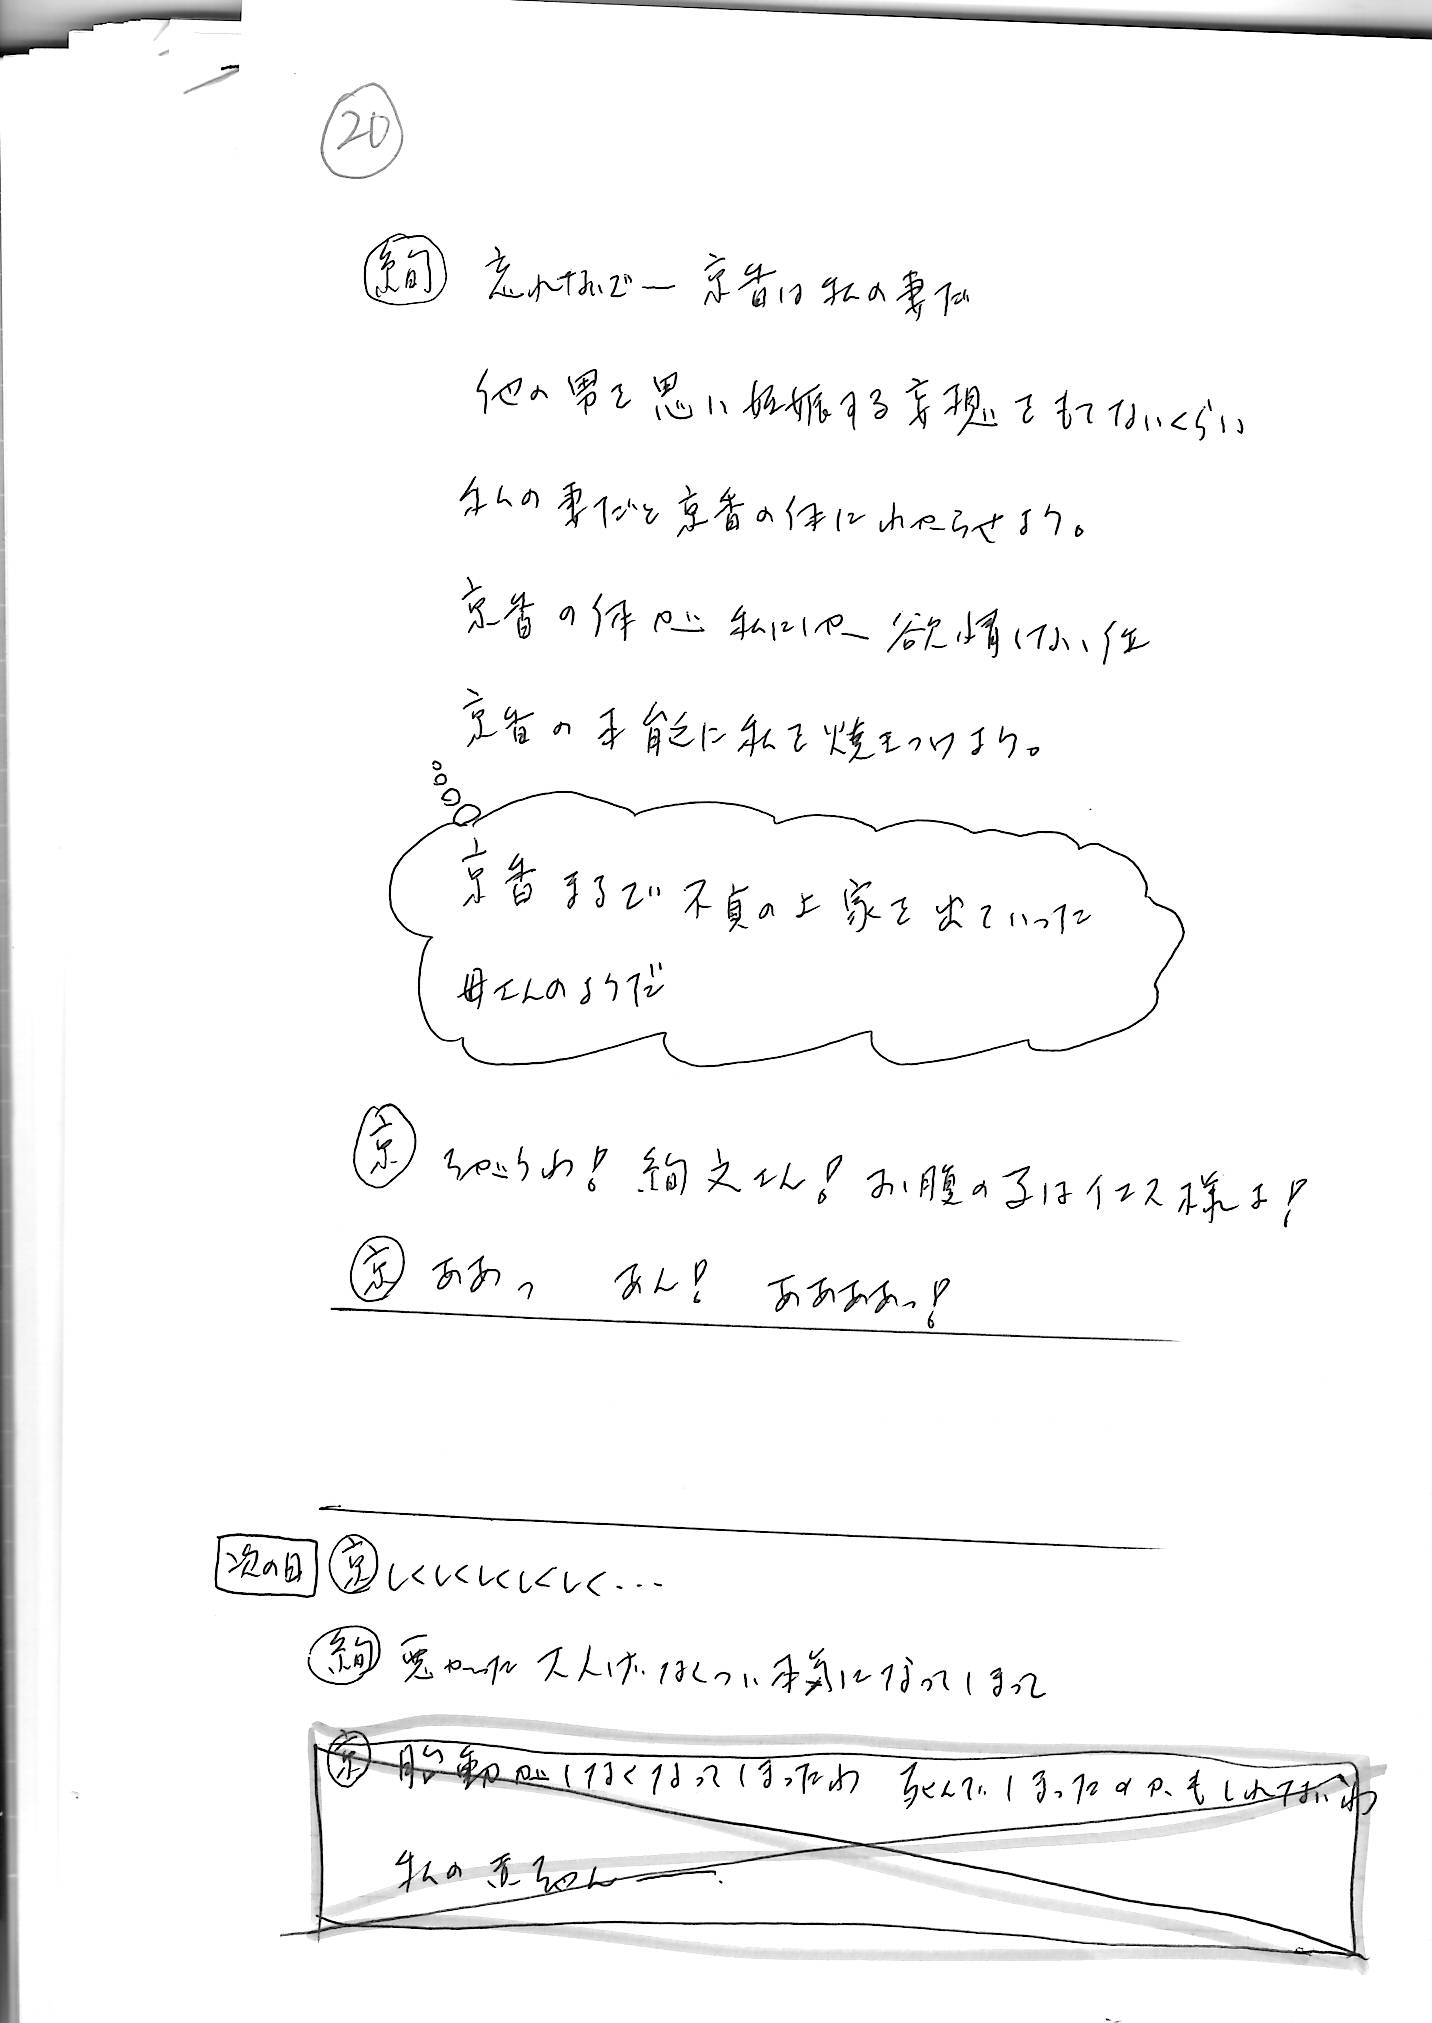 20
絢 忘れないで― 京香は私の妻だ
他の男を思い妊娠する妄想をもてないくらい
私の妻だと京香の体にわからせよう。
京香の体が 私にしか 欲情しない位
京香の本能に私を焼きつけよう。
京香まるで不貞の上家を出ていった
母さんのようだ
京 ちがうわ! 絢文さん! お腹の子はイエス様よ!
京 ああっ あん! ああああっ!
次の日 京 しくしくしくしくしく...
絢 悪かった 大人げなくつい本気になってしまって
京 胎動がしなくなってしまったわ 死んでしまったのかもしれないわ
私の赤ちゃん――.